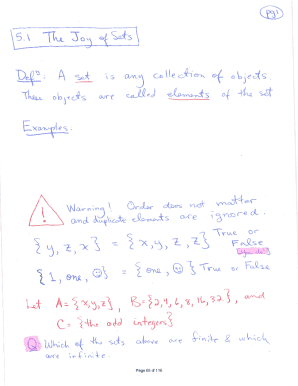 pg 1
5.1 The Joy of Sets
Defⁿ: A set is any collection of objects
These objects are called elements of the set
Examples:
Warning! Order does not matter
and duplicate elements are ignored.
{y, z, x} = {x, y, z, z} True or
False
{1, one, ☺} = {one, ☺} True or False
Let A = {x, y, z}, B = {2, 4, 6, 8, 16, 32}, and
C = {the odd integers}
Q: Which of the sets above are finite & which
are infinite.